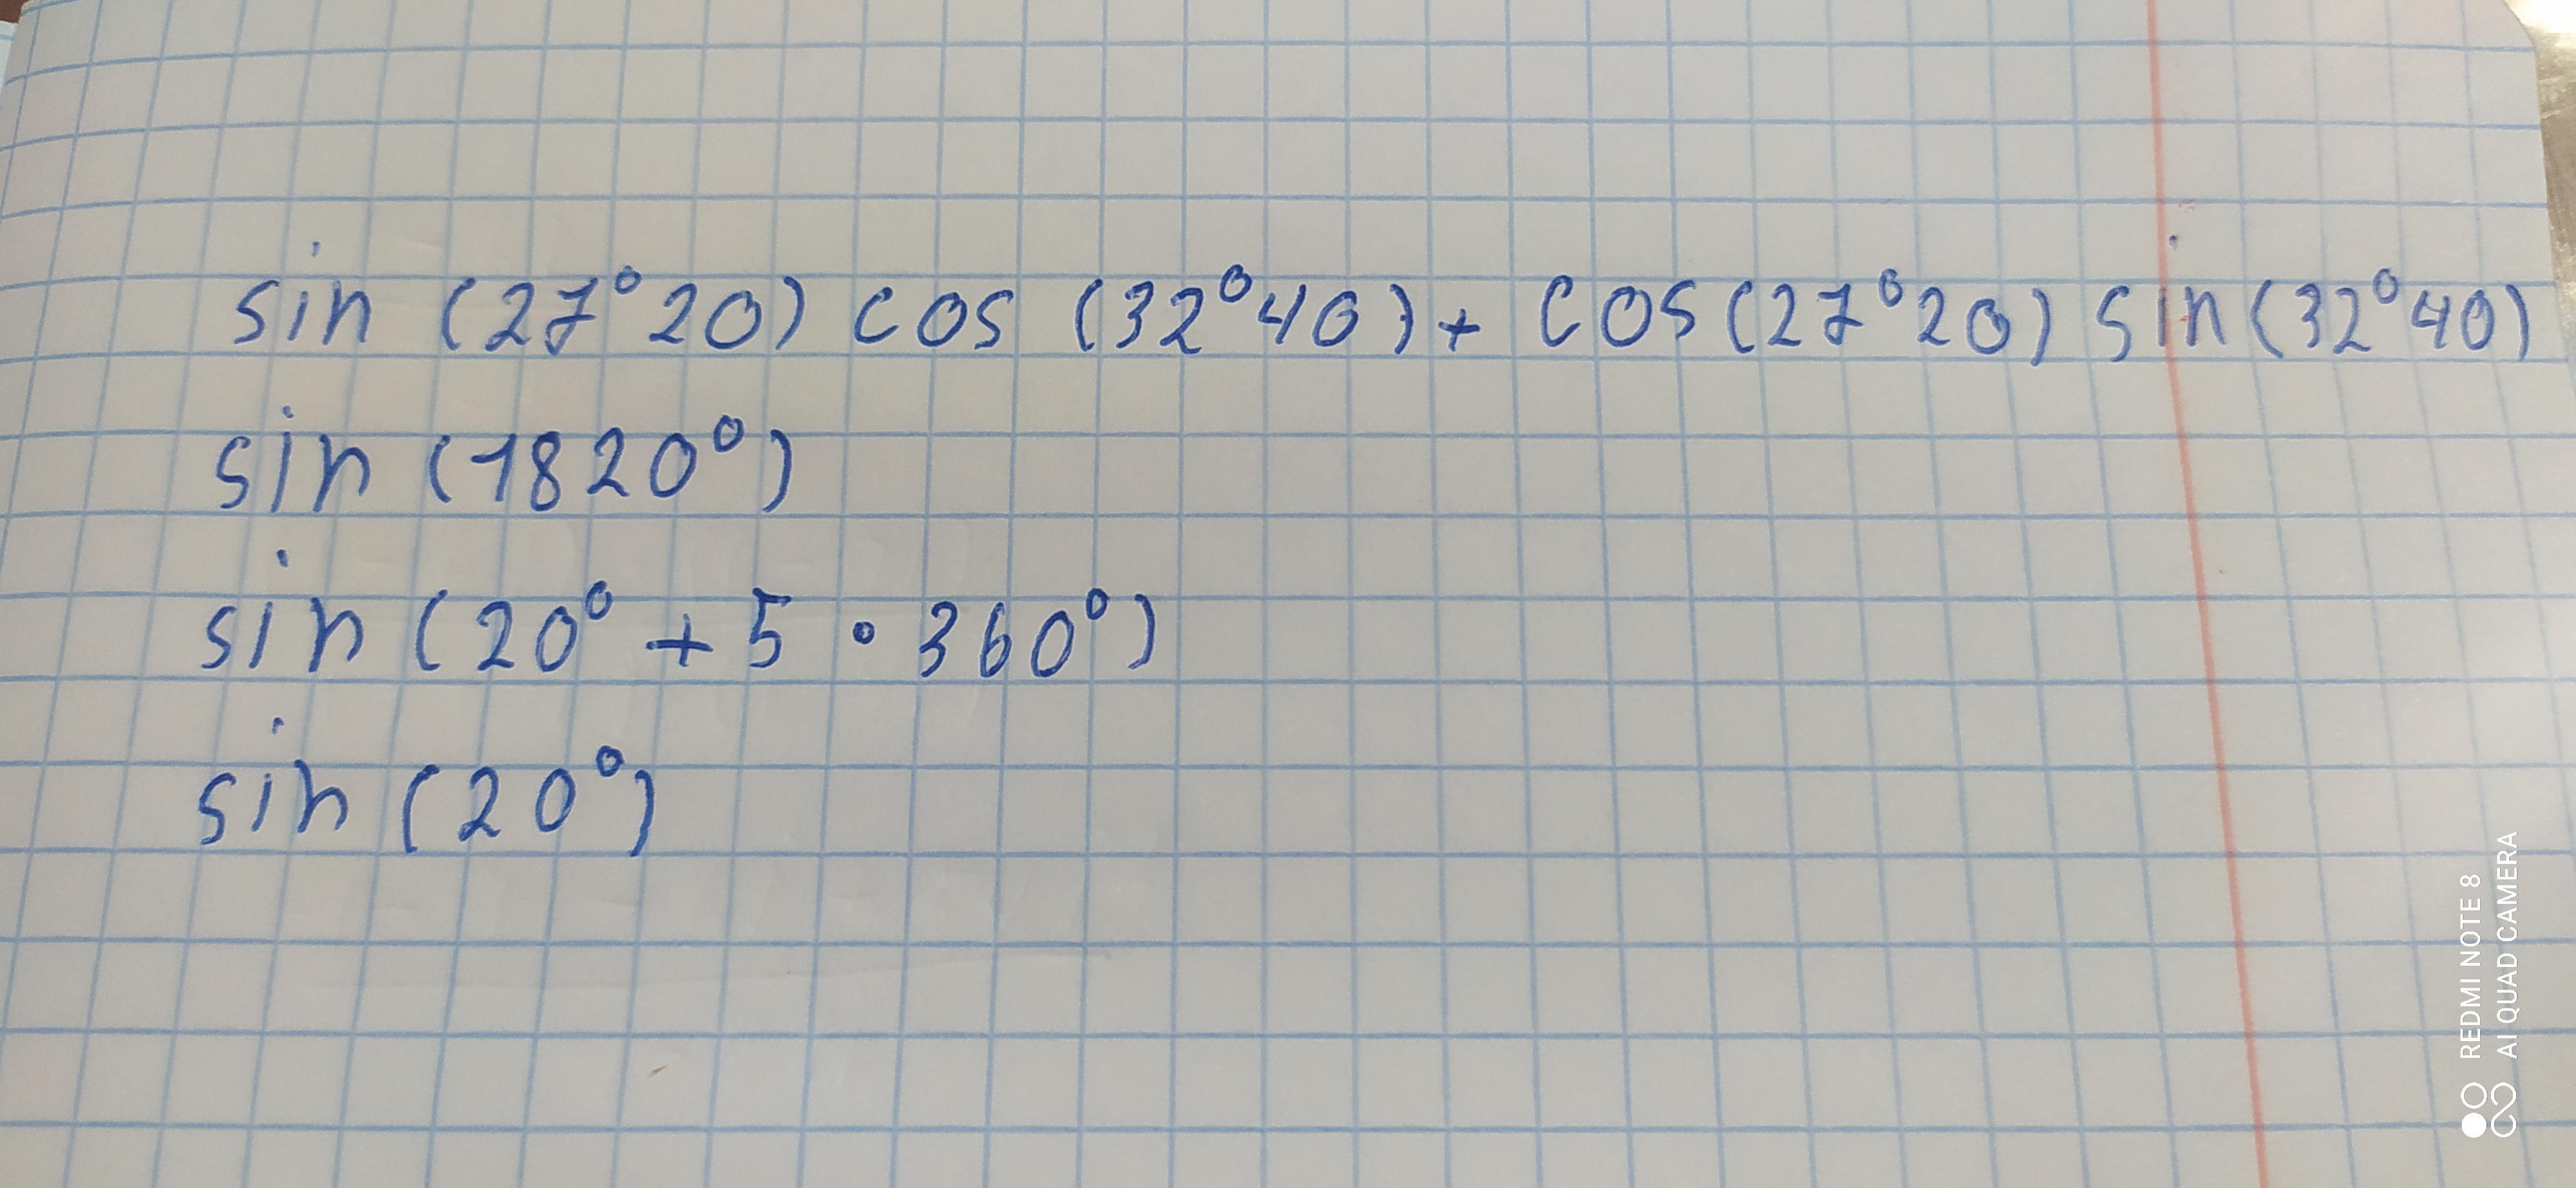 sin (27°20) cos (32°40) + cos (27°20) sin (32°40)
sin (1820°)
sin (20° + 5 • 360°)
sin (20°)
REDMI NOTE 8
AI QUAD CAMERA